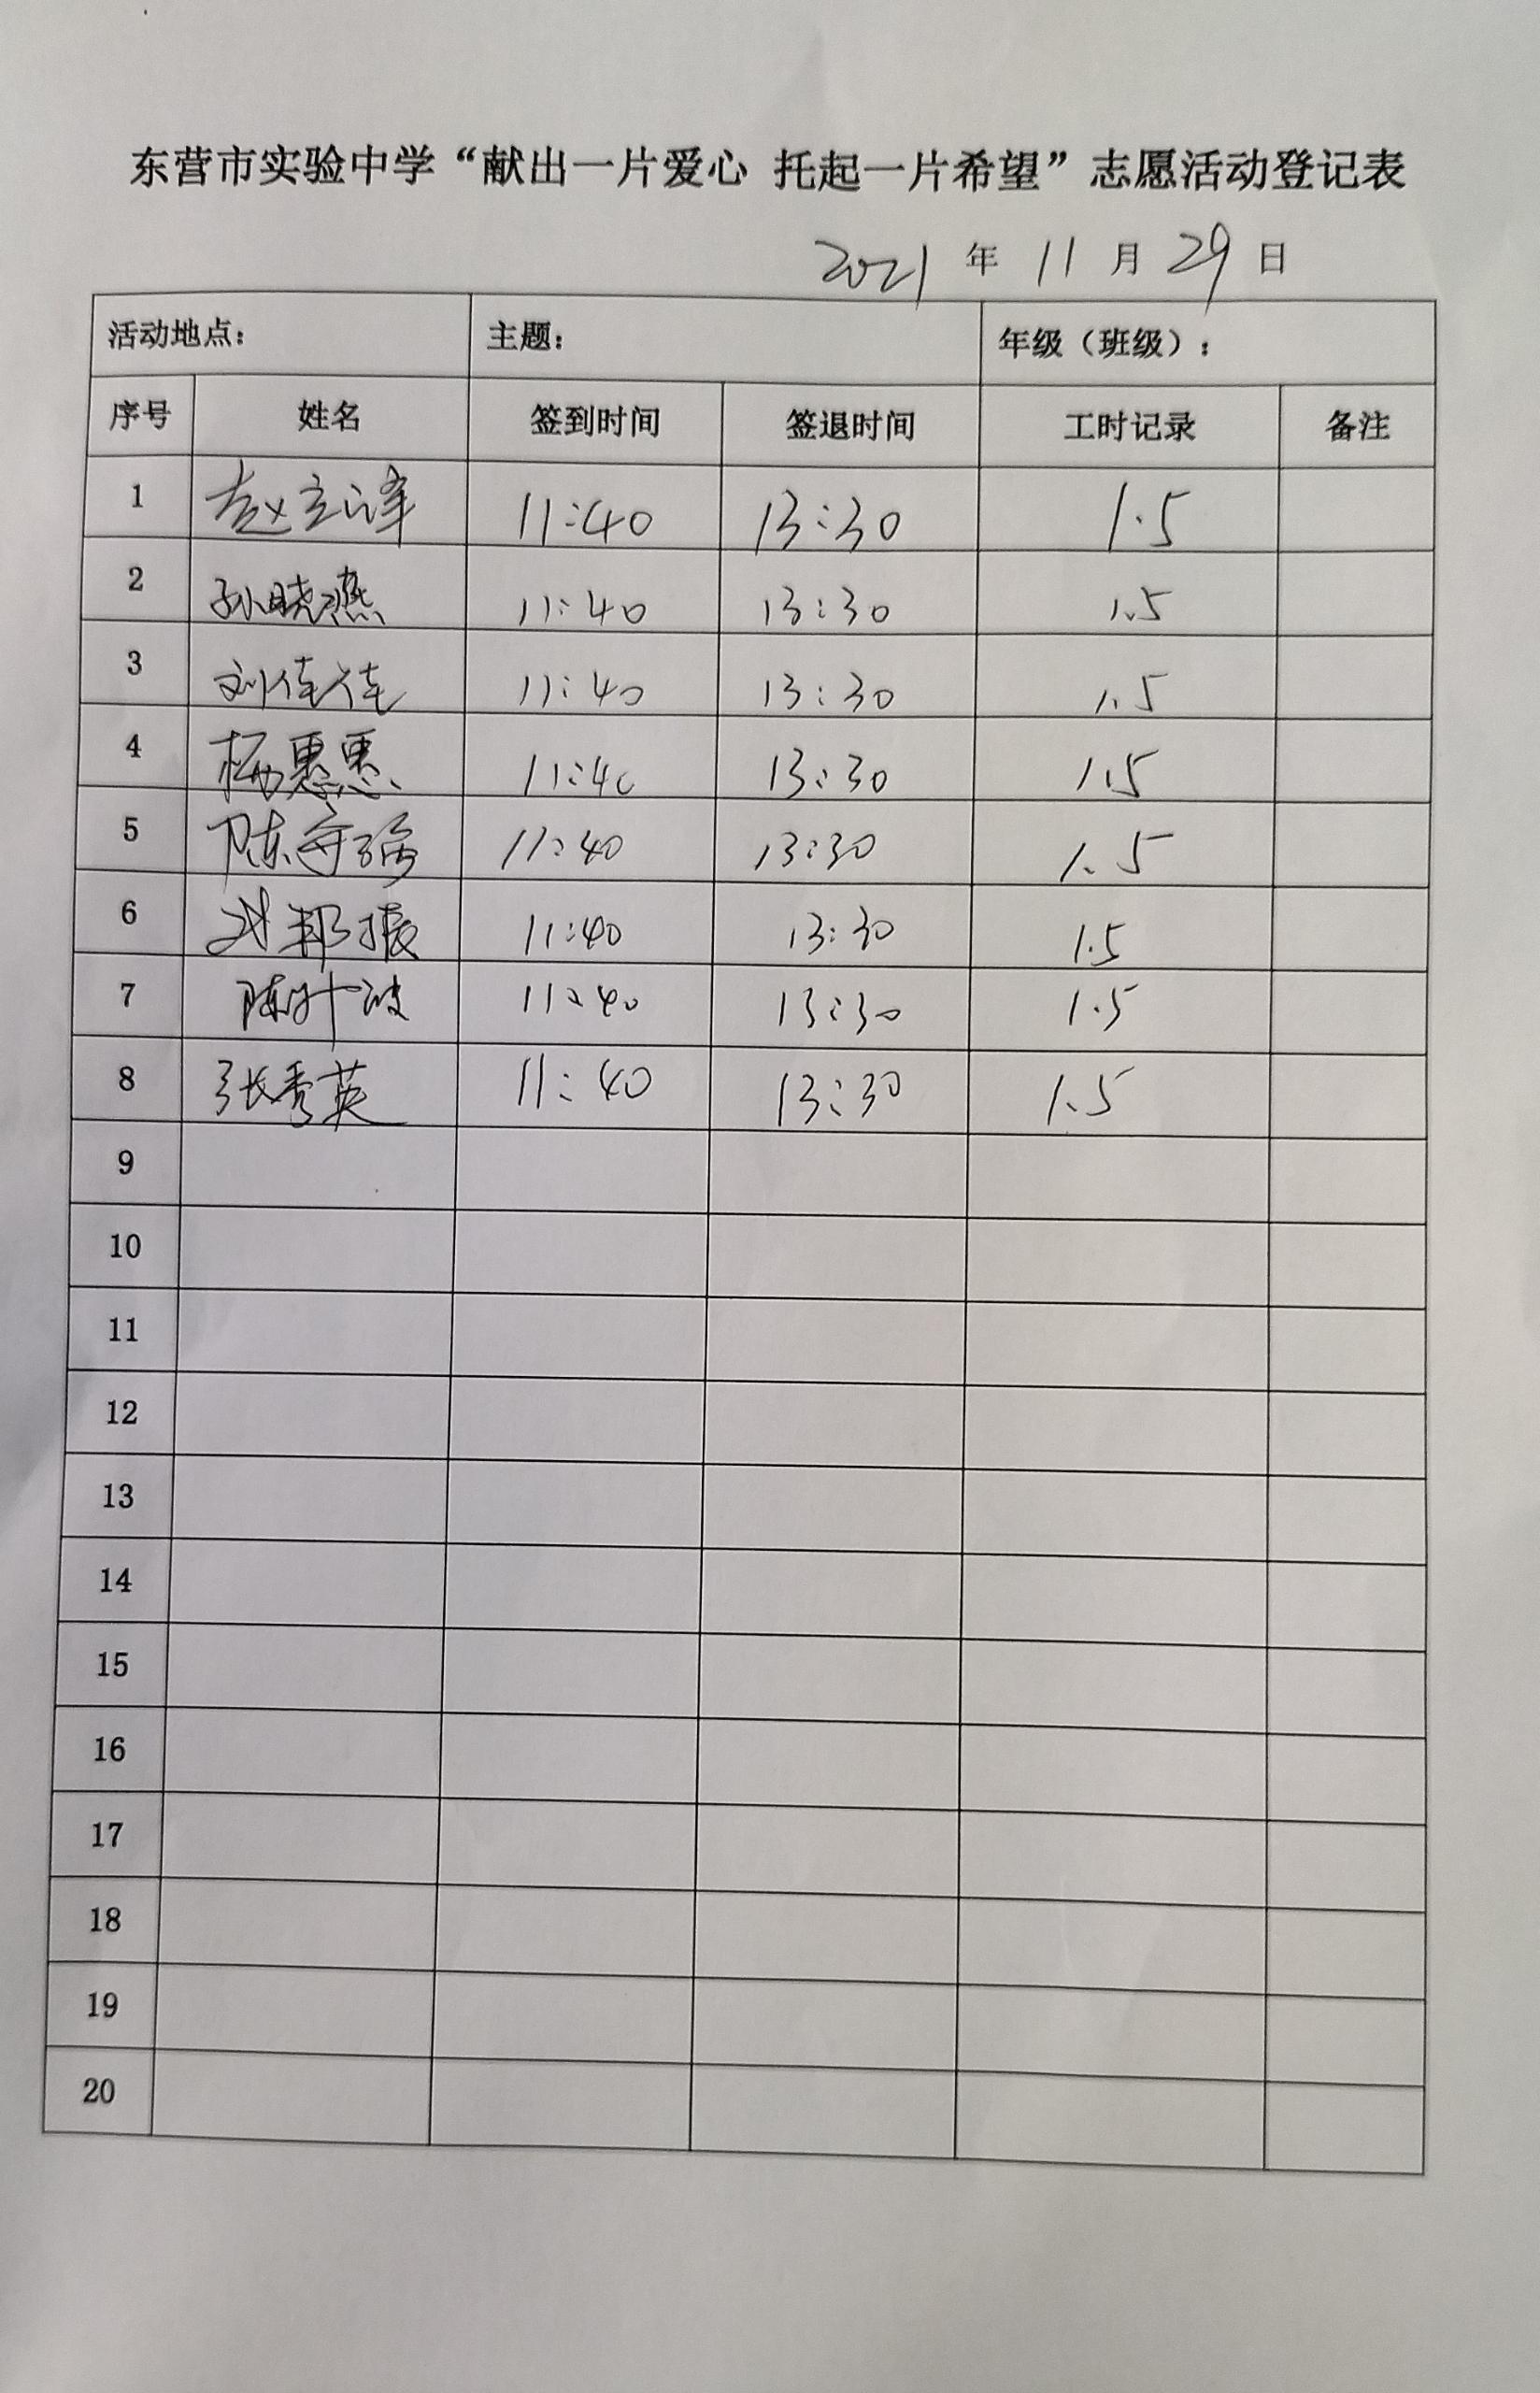 东营市实验中学“献出一片爱心 托起一片希望”志愿活动登记表
2021 年 11 月 29 日
活动地点： 主题： 年级（班级）：
序号 姓名 签到时间 签退时间 工时记录 备注
1 赵立泽 11:40 13:30 1.5
2 孙晓燕 11:40 13:30 1.5
3 刘佳佳 11:40 13:30 1.5
4 杨惠惠 11:40 13:30 1.5
5 陈守强 11:40 13:30 1.5
6 11:40 13:30 1.5
7 11:40 13:30 1.5
8 张秀英 11:40 13:30 1.5
9
10
11
12
13
14
15
16
17
18
19
20